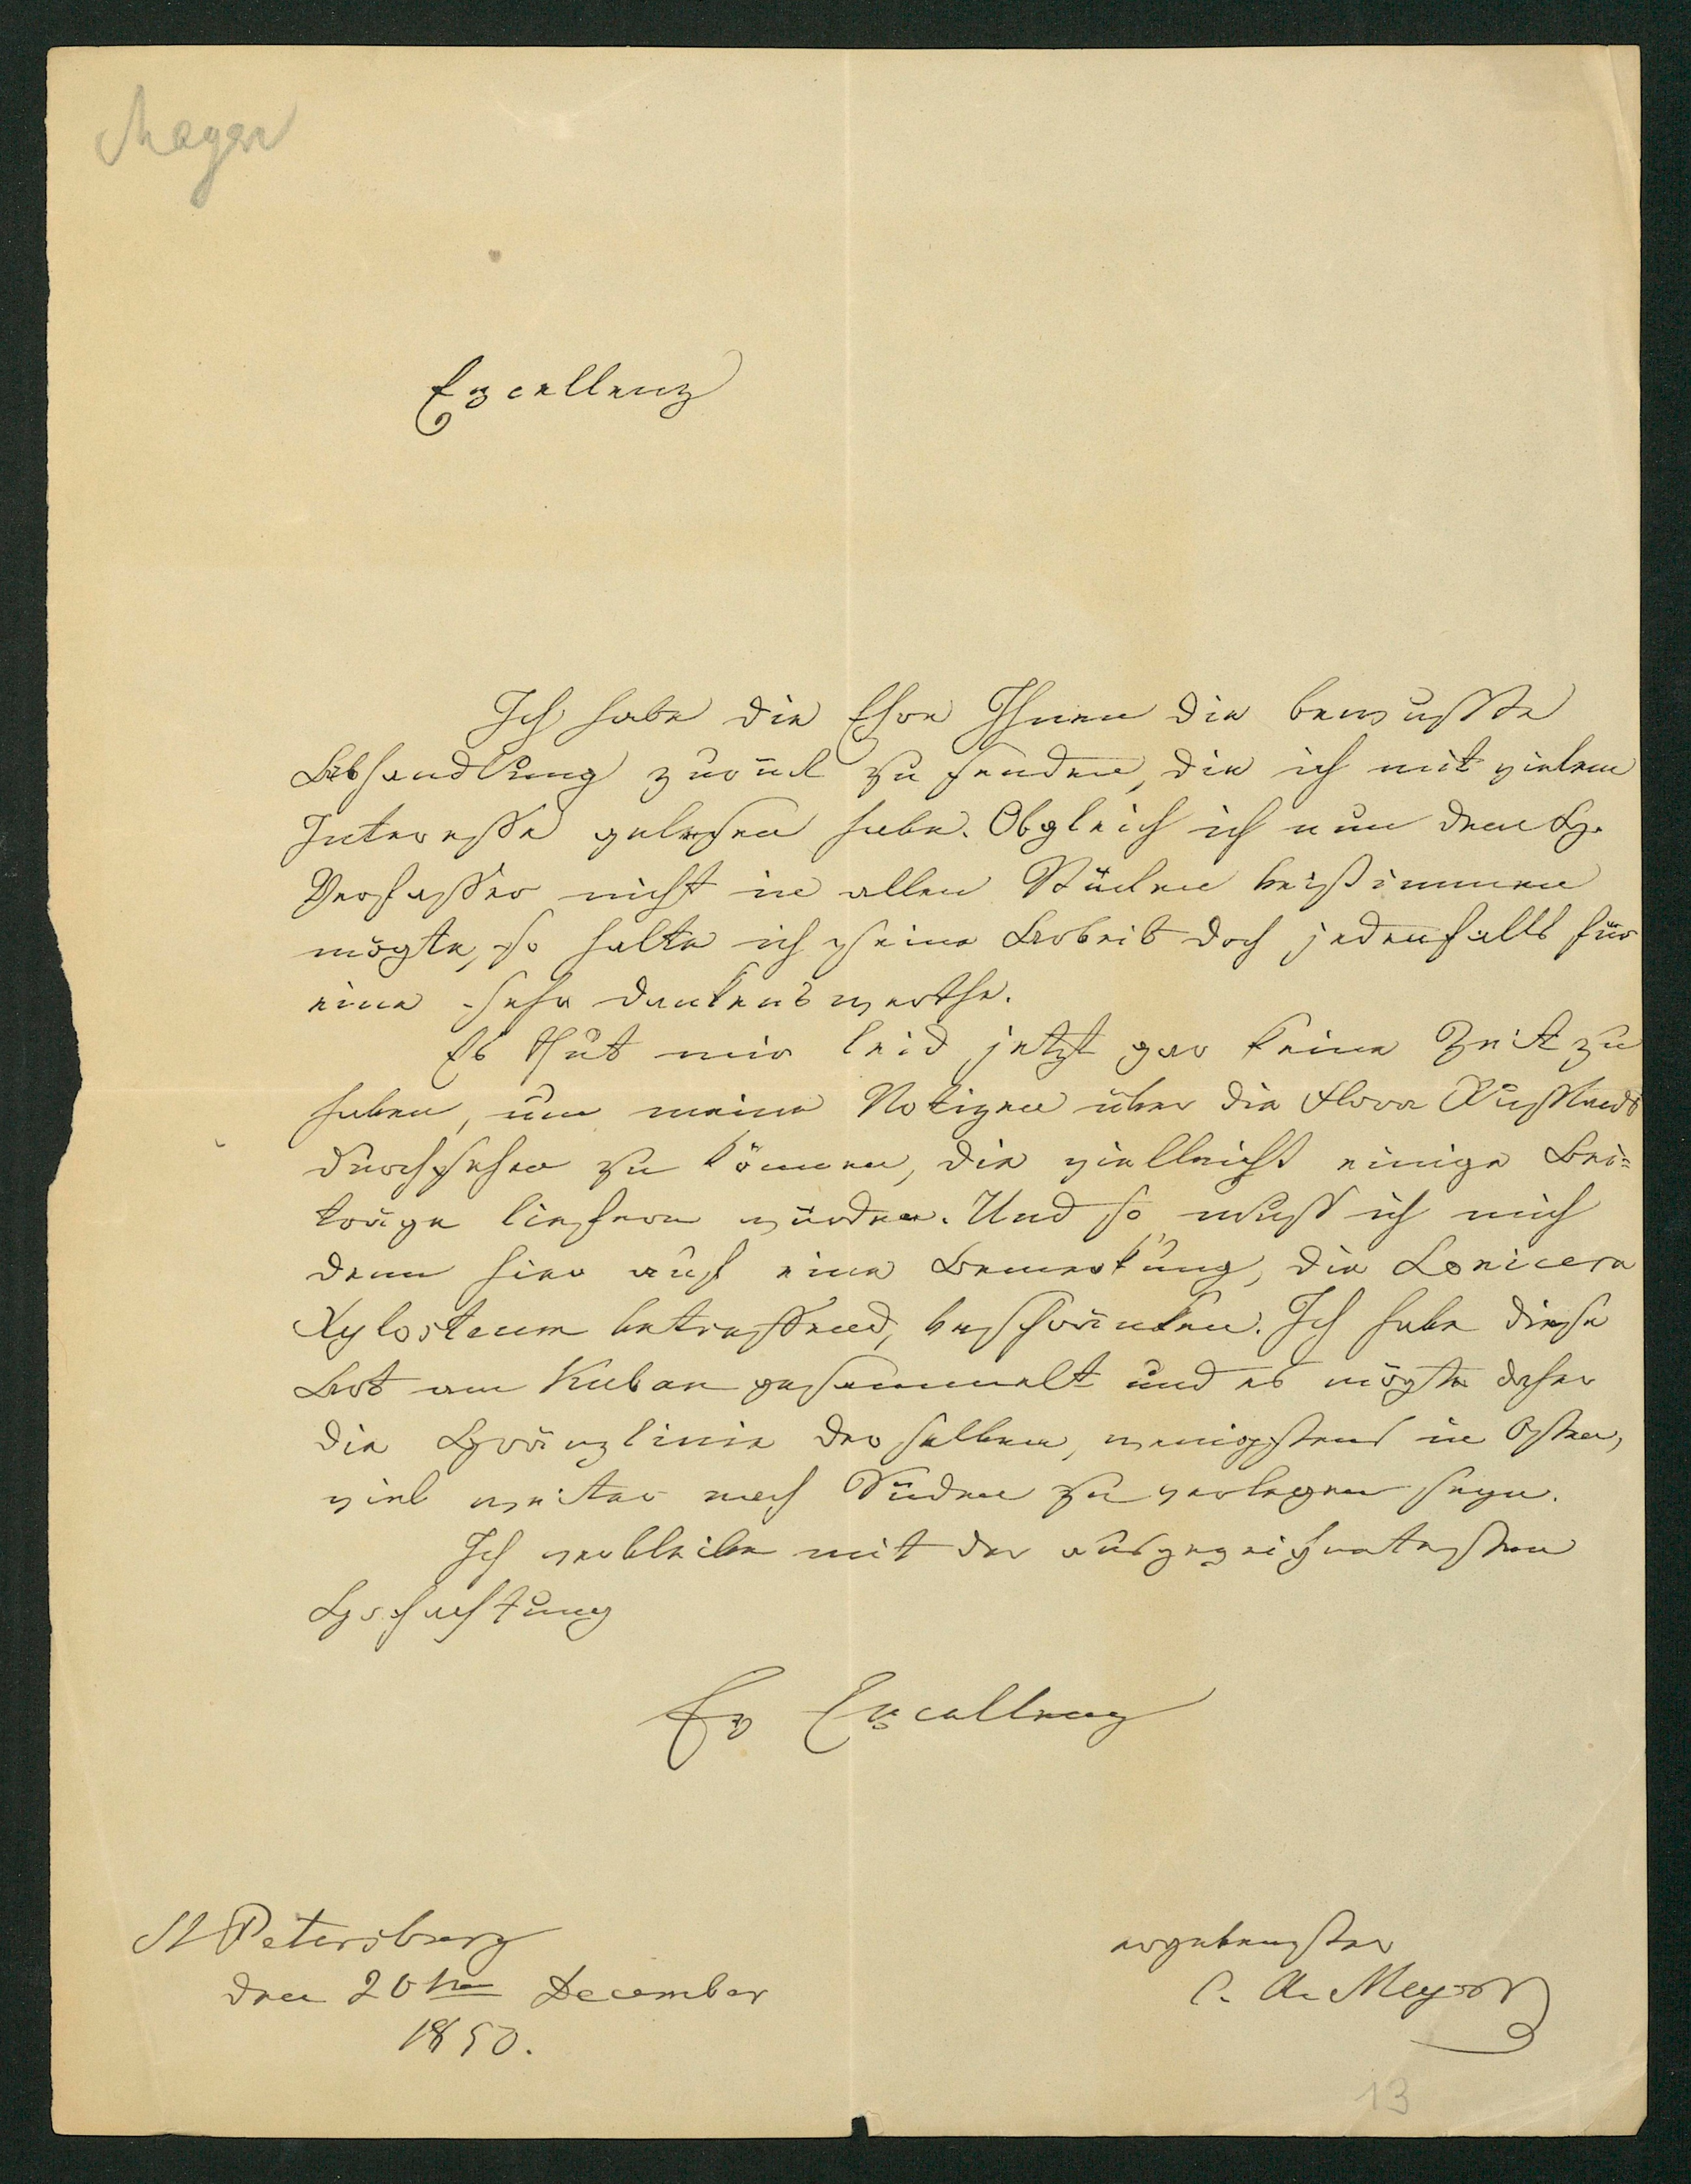 Meyer
Excellenz
Ich habe die Ehre Ihnen die bewußte
Abhandlung zurück zu senden, die ich mit vielem
Interesse gelesen habe. Obgleich ich nun dem H.
Verfasser nicht in allen Stücken beistimmen
mögte, so halte ich seine Arbeit doch jedenfalls für
eine sehr dankenswerthe.
Es thut mir leid jetzt gar keine Zeit zu
haben, um meine Notizen über die Flora Russlands
durchsehen zu können, die vielleicht einige Bei=
träge liefern würden. Und so muss ich mich
denn hier auf eine Bemerkung, die Lonicera
Xylosteum betreffend, beschränken. Ich habe diese
Art am Kuban gesammelt und es mögte daher
die Gränzlinie derselben, wenigstens in Osten,
viel weiter nach Süden zu verlegen seyn.
Ich verbleibe mit der ausgezeichnetesten
Hochachtung
Ew Excellenz
St Petersburg
den 20ten December
1850.
ergebenster
C. A. Meyer
13